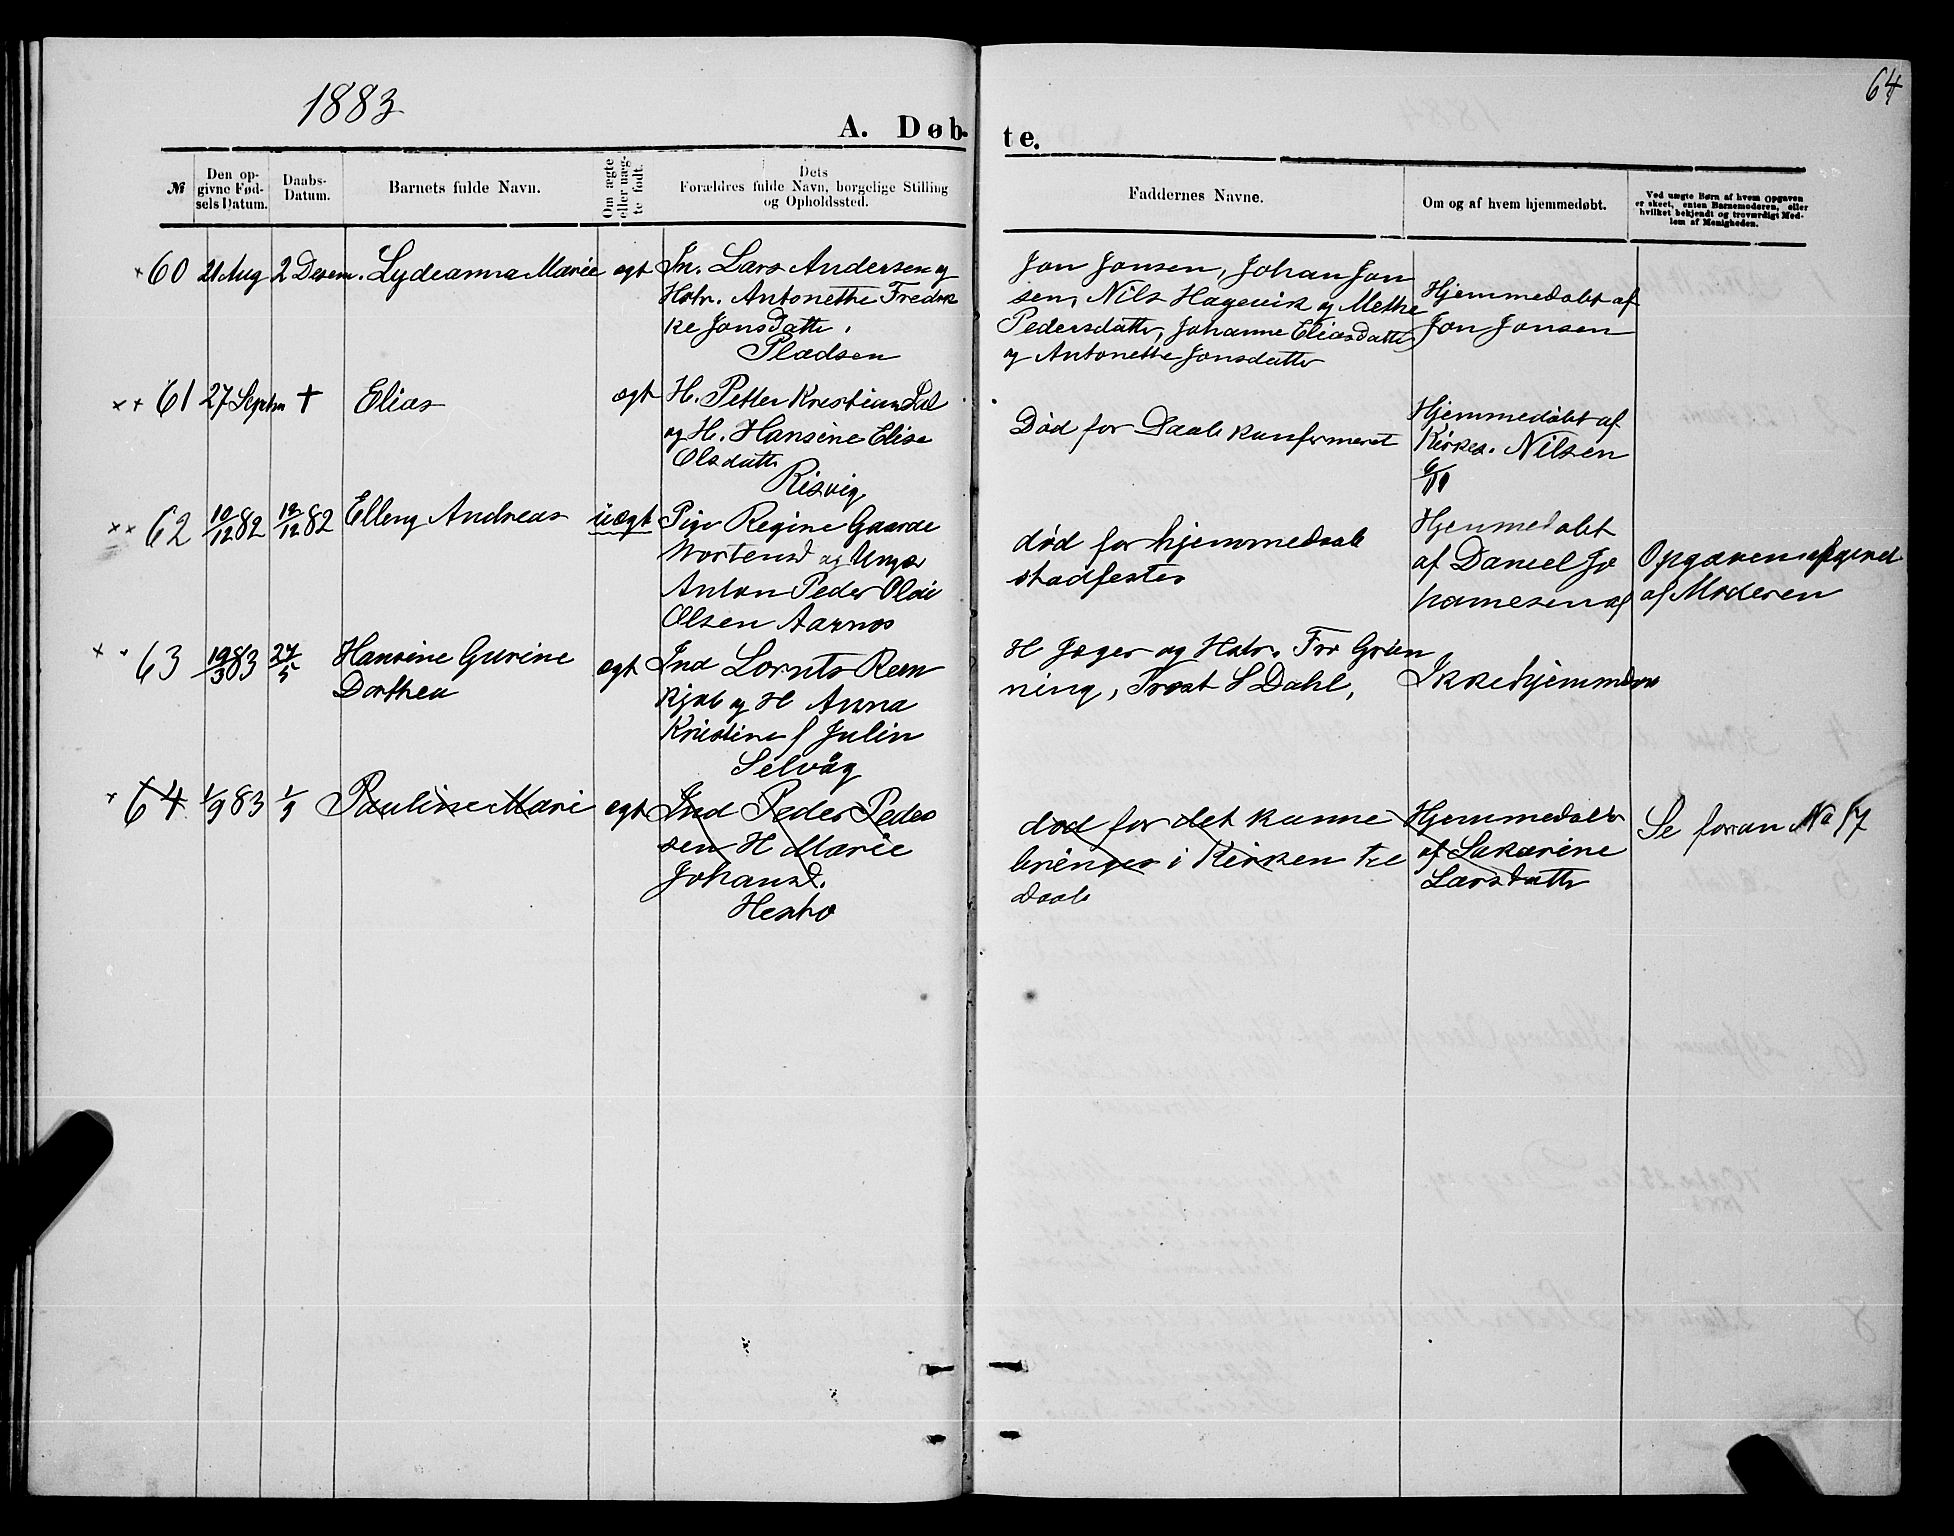 1883
64
A. Døb-
te.
№
Den op-
givne Fød-
sels Datum.
Daabs-
Datum.
Barnets fulde Navn.
Om ægte
eller uæg-
te født.
Dets
Forældres fulde Navn, borgelige Stilling
og Opholdssted.
Faddernes Navne.
Om og af hvem hjemmedøbt.
Ved uægte Børn af hvem Opgaven
er skeet, enten Barnemoderen, eller
hvilket bekjendt og troværdigt Med-
lem af Menigheden.
60 21 Aug 2 Decem. Lydeanna Marie ægt In. Lars Andersen og
Hstr. Antonette Fredrik
ke Jonsdatter.
Pladsen
Jon Jonsen, Johan Jon
sen, Nils Hagevik og Methe
Pedersdatter, Johanne Eliasdatter
og Antonette Jonsdatter
Hjemmedøbt af
Jon Jonsen
61 27 Septem † Elias ægt H. Petter Kristian
og H. Hansine Elise
Olsdatter
Risvig
Død før Daab konfermeret
Hjemmedøbt af
Kirkes. Nilsen
6/11
62 10/12 82 12/12 82 Elling Andreas uægt Pige Regine Gaarde
Mortensd og Ungk
Anton Peder Olai
Olsen Aarnes
død før hjemmedaab
stadfestes
Hjemmedøbt
af Daniel Jo
hannesen af
Opgaven opgivet
af Moderen
63 19/3 83 27/5 Hansine Gurine
Dorthea
ægt Ind Lornts Rem
Kjøb og H Anna
Kristine f Julin
Selvåg
H Jæger og Hstr. Fru Grøn
ning, Provst S Dahl,
Ikke hjemmedøbt
64 1/9 83 1/9 Pauline Marie ægt Ind Peder Peder
sen H Marie
Johansd.
Hestø
død før det kunne
bringes i Kirken til
daab
Hjemmedøbt
af Sakarine
Larsdatter
Se foran No 17